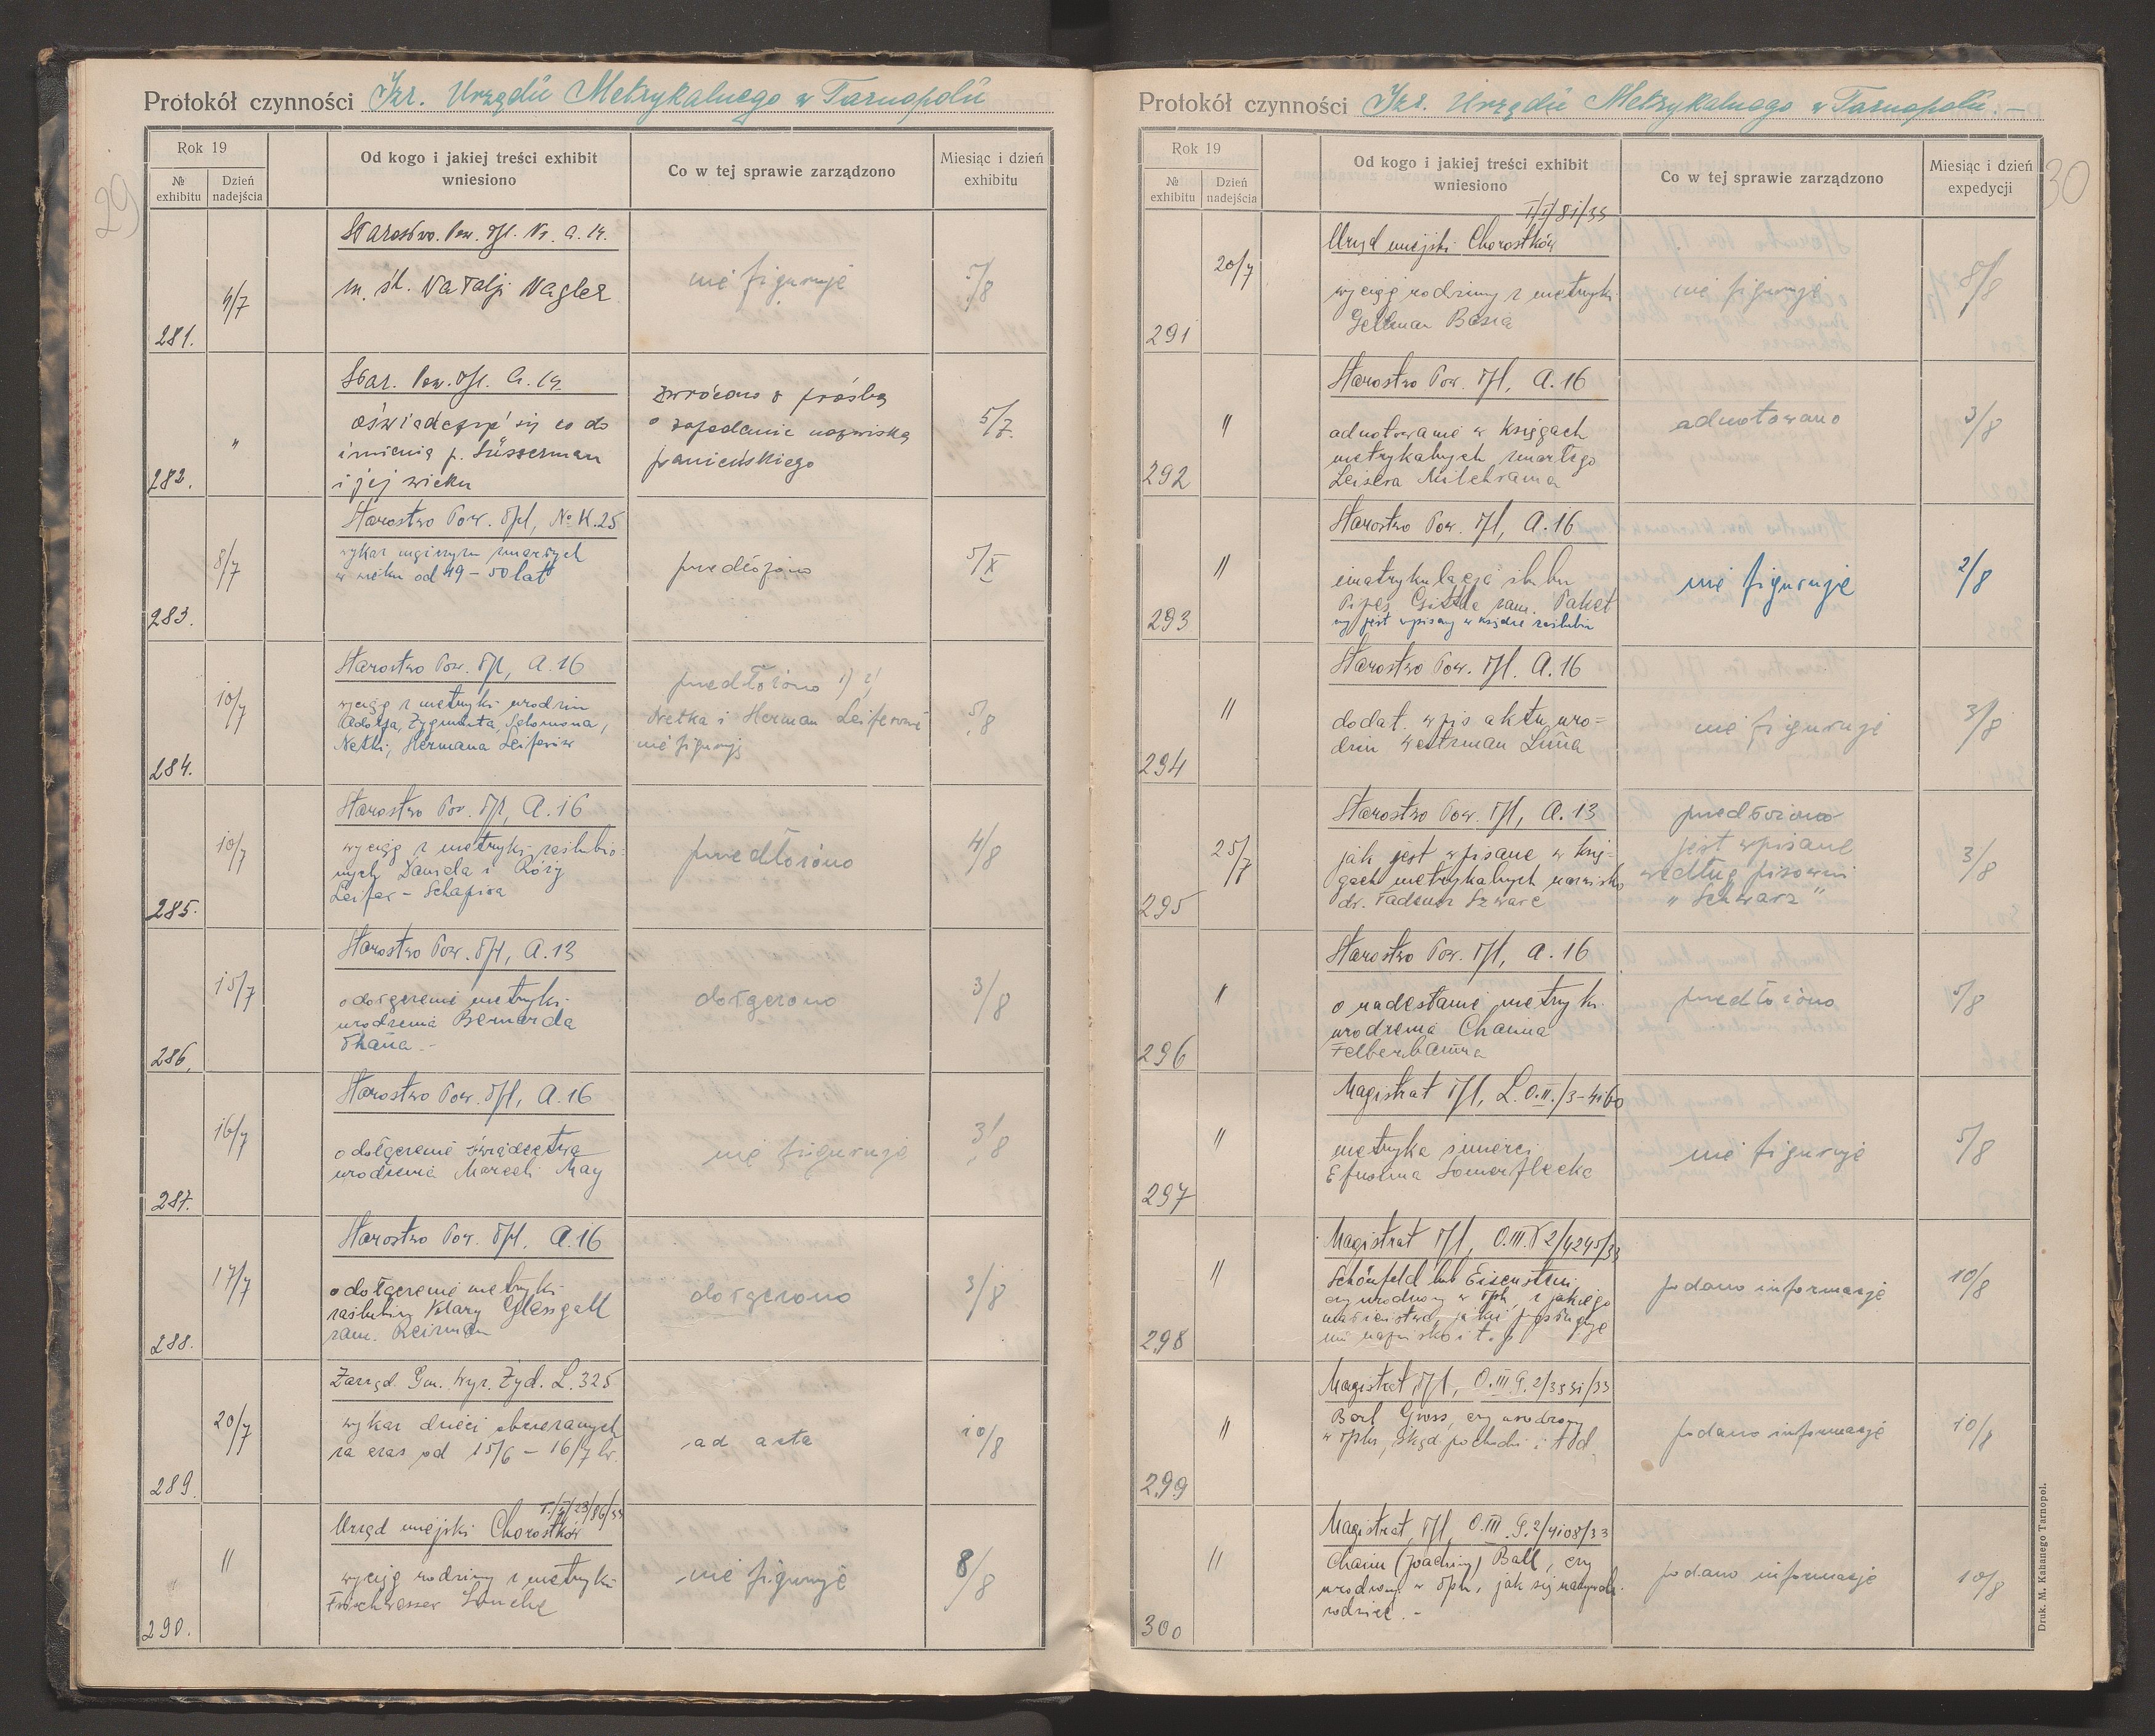 29
Protokół czynności Izr. Urzędu Metrykalnego w Tarnopolu
Rok 19
Od kogo i jakiej treści exhibit
wniesiono
Co w tej sprawie zarządzono
Miesiąc i dzień
exhibitu
№
exhibitu
Dzień
nadejścia
Starostwo. Pow. Tpl. Nr. A. 14.
281. 4/7
m. śl. Natalji Nagler
nie figuruje
5/8
Star. Pow. Tpl. A. 14
282. "
oświadczyć się co do
imienia p. Süsserman
i jej wieku
zwrócono z prośbą
o zapodanie nazwiska
panieńskiego
5/7.
Starostwo Pow. Tpl, No K.25
283. 8/7
wykaz mężczyzn zmarłych
w wieku od 49 - 50 lat
przedłożono
5/X
Starostwo Pow. Tpl, A. 16
284. 10/7
wyciąg z metryki urodzin
Adolfa, Zygmunta, Salomona,
Netki, Hermana Leiferów
przedłożono
Netka i Herman Leiferowie
nie figurują
5/8
Starostwo Pow. Tpl, A. 16
285. 10/7
wyciąg z metryki zaślubio-
nych Daniela i Róży
Leifer - Schapira
przedłożono
4/8
Starostwo Pow. Tpl, A. 13
286. 15/7
o dołączenie metryki
urodzenia Bernarda
Thaua -
dołączono
3/8
Starostwo Pow. Tpl, A. 16
287. 16/7
o dołączenie świadectwa
urodzenia Marceli May
nie figuruje
3/8
Starostwo Pow. Tpl, A. 16
288. 17/7
o dołączenie metryki
zaślubin Klary Glessgall
zam. Reizman
dołączono
3/8
Zarząd Gm. Wyz. Żyd. L. 325
289. 20/7
wykaz dzieci obrzezanych
za czas od 15/6 - 16/7 br.
ad acta
10/8
Urząd miejski Chorostków
290. "
wyciąg rodzinny z metryki
Frischwasser
nie figuruje
8/8
30
Protokół czynności Izr. Urzędu Metrykalnego w Tarnopolu. -
Rok 19
Od kogo i jakiej treści exhibit
wniesiono
Co w tej sprawie zarządzono
Miesiąc i dzień
expedycji
№
exhibitu
Dzień
nadejścia
Urząd miejski Chorostków
291 20/7
wyciąg rodzinny z metryki
Gellman Basia
nie figuruje
8/8
Starostwo Pow. Tpl, A. 16
292 "
adnotowanie w księgach
metrykalnych zmarłego
Leisera Milchrama
adnotowano
3/8
Starostwo Pow. Tpl, A. 16
293 "
imatrykulacja ślubu
Pipes Gittla zam. Paket
czy jest wpisany w księdze zaślubin
nie figuruje
2/8
Starostwo Pow. Tpl. A. 16
294 "
dodat. wpis aktu uro-
dzin Westrman Luña
nie figuruje
3/8
Starostwo Pow. Tpl, A. 13
295 25/7
jak jest wpisane w księ-
gach metrykalnych nazwisko
dr. Tadeusz Szwarc
przedłożono
jest wpisane
według pisowni
„Schwarz"
3/8
Starostwo Pow. Tpl, A. 16
296 "
o nadesłanie metryki
urodzenia Chauna
Felberbauma
przedłożono
5/8
Magistrat Tpl, L. O.II./3-4160
297 "
metryka śmierci
Efroima Somerflecka
nie figuruje
5/8
Magistrat Tpl, O.III. 2/4245/33
298 "
Schönfeld lub Eisenstein
czy urodzony w Tplu, z jakiego
małżeństwa, jakie przysługuje
mu nazwisko i t. p.
podano informacje
10/8
Magistrat Tpl, O.III.G.2/3331/33
299 "
Berl Gross, czy urodzony
w Tplu, skąd pochodzi i t d.
podano informacje
10/8
Magistrat, Tpl, O.III. G.2/4108/33
300 "
Chaim (Joachim) Ball, czy
urodzony w Tplu, jak się nazywali
rodzice. -
podano informacje
10/8
Druk. M. Kahanego Tarnopol.